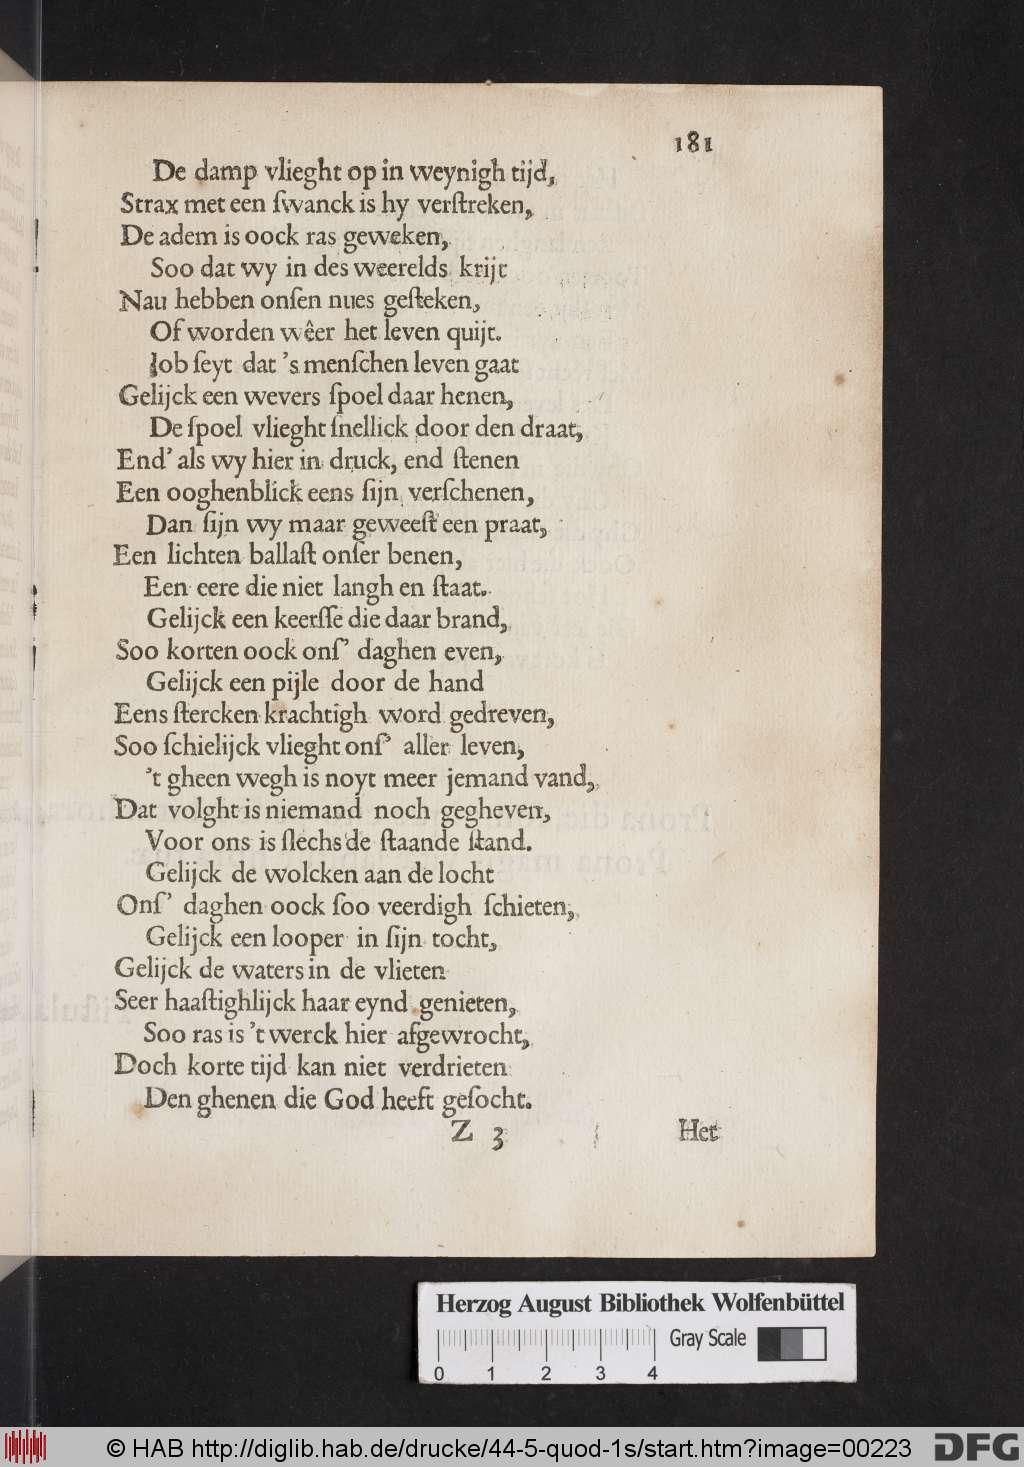 181
De damp vlieght op in weynigh tijd,
Strax met een ſwanck is hy verſtreken,
De adem is oock ras geweken,
Soo dat wy in des weerelds krijt
Nau hebben onſen nues geſteken,
Of worden wêer het leven quijt.
Job ſeyt dat 's menſchen leven gaat
Gelijck een wevers ſpoel daar henen,
De ſpoel vlieght ſnellick door den draat,
End' als wy hier in druck, end ſtenen
Een ooghenblick eens ſijn verſchenen,
Dan ſijn wy maar geweeſt een praat,
Een lichten ballaſt onſer benen,
Een eere die niet langh en ſtaat.
Gelijck een keerſſe die daar brand,
Soo korten oock onſ' daghen even,
Gelijck een pijle door de hand
Eens ſtercken krachtigh word gedreven,
Soo ſchielijck vlieght onſ' aller leven,
't gheen wegh is noyt meer jemand vand,
Dat volght is niemand noch gegheven,
Voor ons is ſlechs de ſtaande ſtand.
Gelijck de wolcken aan de locht
Onſ' daghen oock ſoo veerdigh ſchieten,
Gelijck een looper in ſijn tocht,
Gelijck de waters in de vlieten
Seer haaſtighlijck haar eynd genieten,
Soo ras is 't werck hier afgewrocht,
Doch korte tijd kan niet verdrieten
Den ghenen die God heeft geſocht.
Z 3 Het
Herzog August Bibliothek Wolfenbüttel
Gray Scale
0 1 2 3 4
© HAB http://diglib.hab.de/drucke/44-5-quod-1s/start.htm?image=00223 DFG